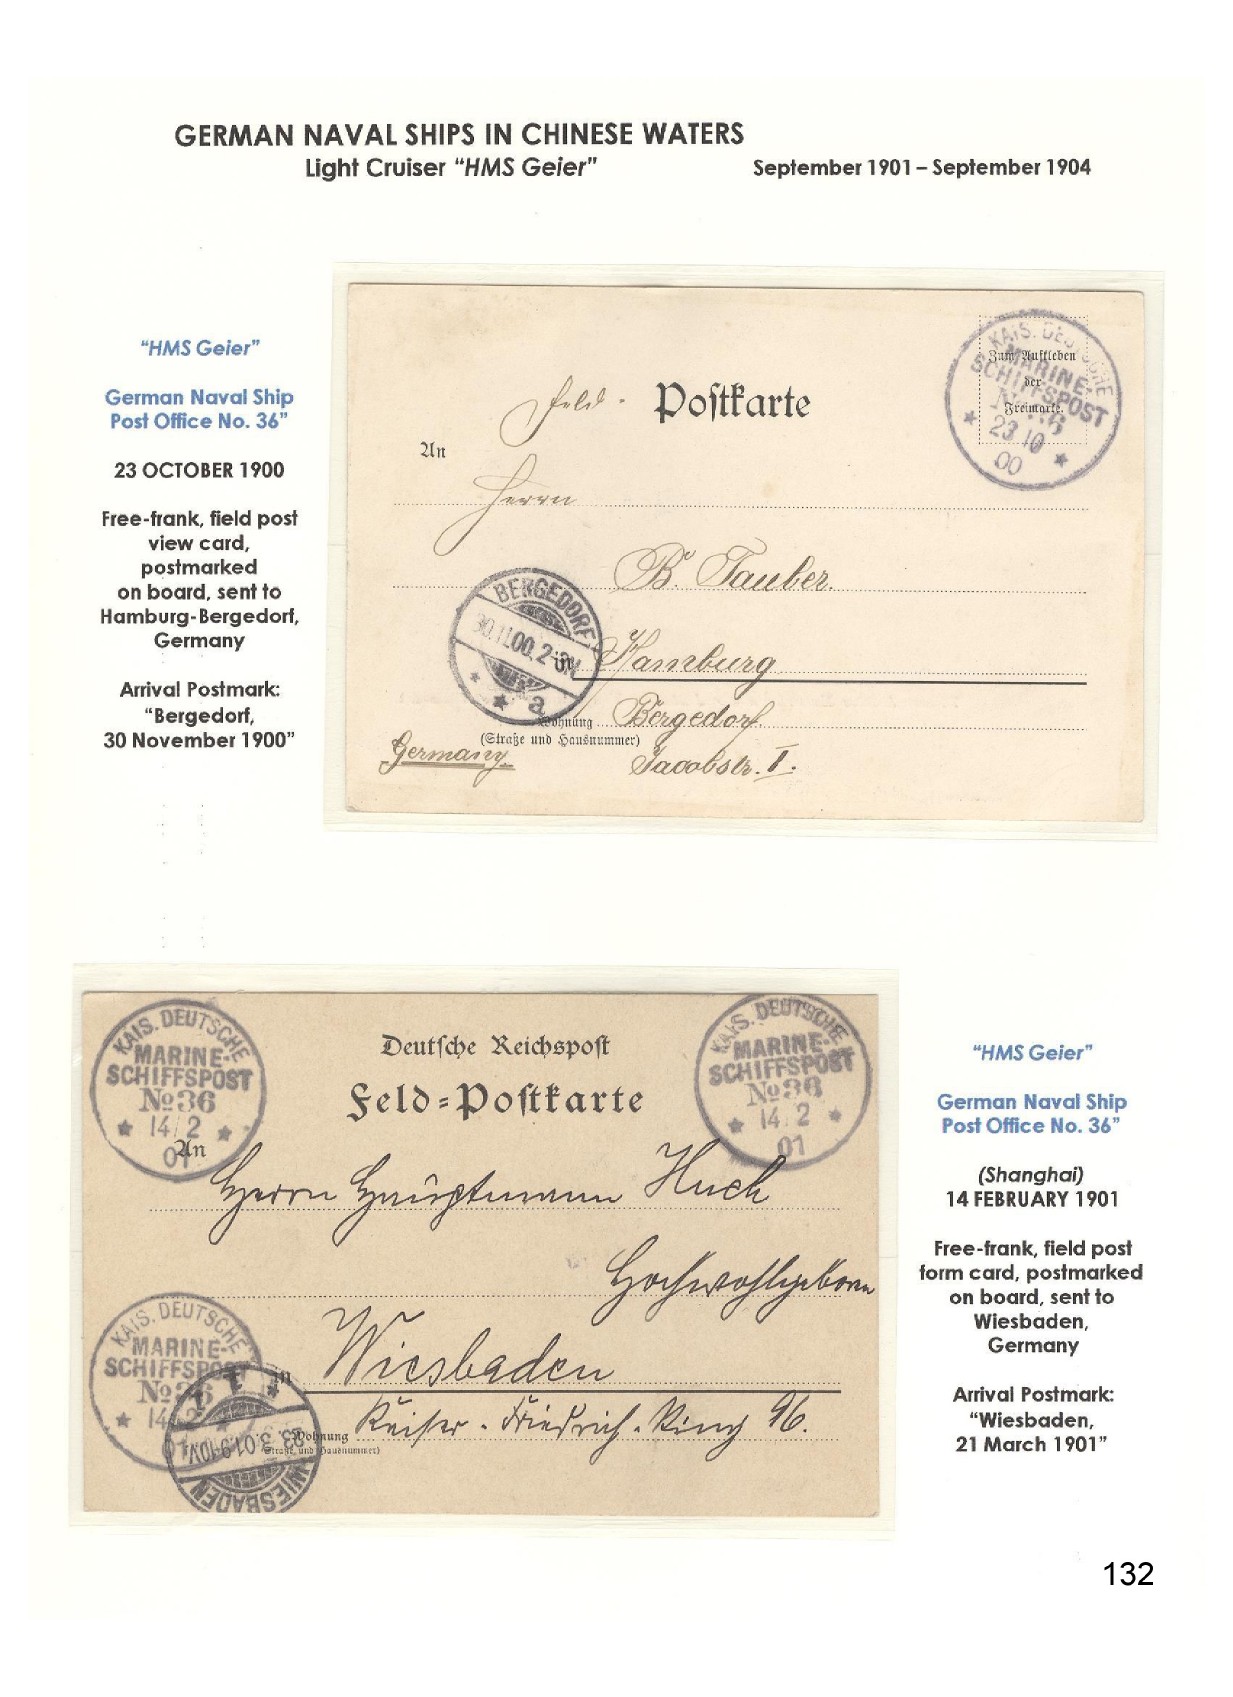 GERMAN NAVAL SHIPS IN CHINESE WATERS
Light Cruiser “HMS Geier” September 1901 – September 1904
“HMS Geier”
German Naval Ship
Post Office No. 36”
23 OCTOBER 1900
Free-frank, field post
view card,
postmarked
on board, sent to
Hamburg-Bergedorf,
Germany
Arrival Postmark:
“Bergedorf,
30 November 1900”
KAIS. DEUTSCHE
MARINE-
SCHIFFSPOST
No 36
23 10
00
Zum Aufkleben
der
Freimarke.
Feld- Postkarte
An
Herrn
B. Tauber.
BERGEDORF
30.11.00. 2-3N
* * a
in Hamburg
Wohnung Bergedorf
(Straße und Hausnummer)
Germany Jacobstr. I.
KAIS. DEUTSCHE
MARINE-
SCHIFFSPOST
No 36
* 14/2 *
01
KAIS. DEUTSCHE
MARINE-
SCHIFFSPOST
No 36
* 14/2 *
01
Deutsche Reichspost
Feld-Postkarte
An
Herrn Hauptmann Huch
Hochwohlgeboren
in Wiesbaden
Wohnung Kaiser-Friedrich-Ring 96.
(Straße und Hausnummer)
KAIS. DEUTSCHE
MARINE-
SCHIFFSPOST
No 36
* 14/2
WIESBADEN
“HMS Geier”
German Naval Ship
Post Office No. 36”
(Shanghai)
14 FEBRUARY 1901
Free-frank, field post
form card, postmarked
on board, sent to
Wiesbaden,
Germany
Arrival Postmark:
“Wiesbaden,
21 March 1901”
132